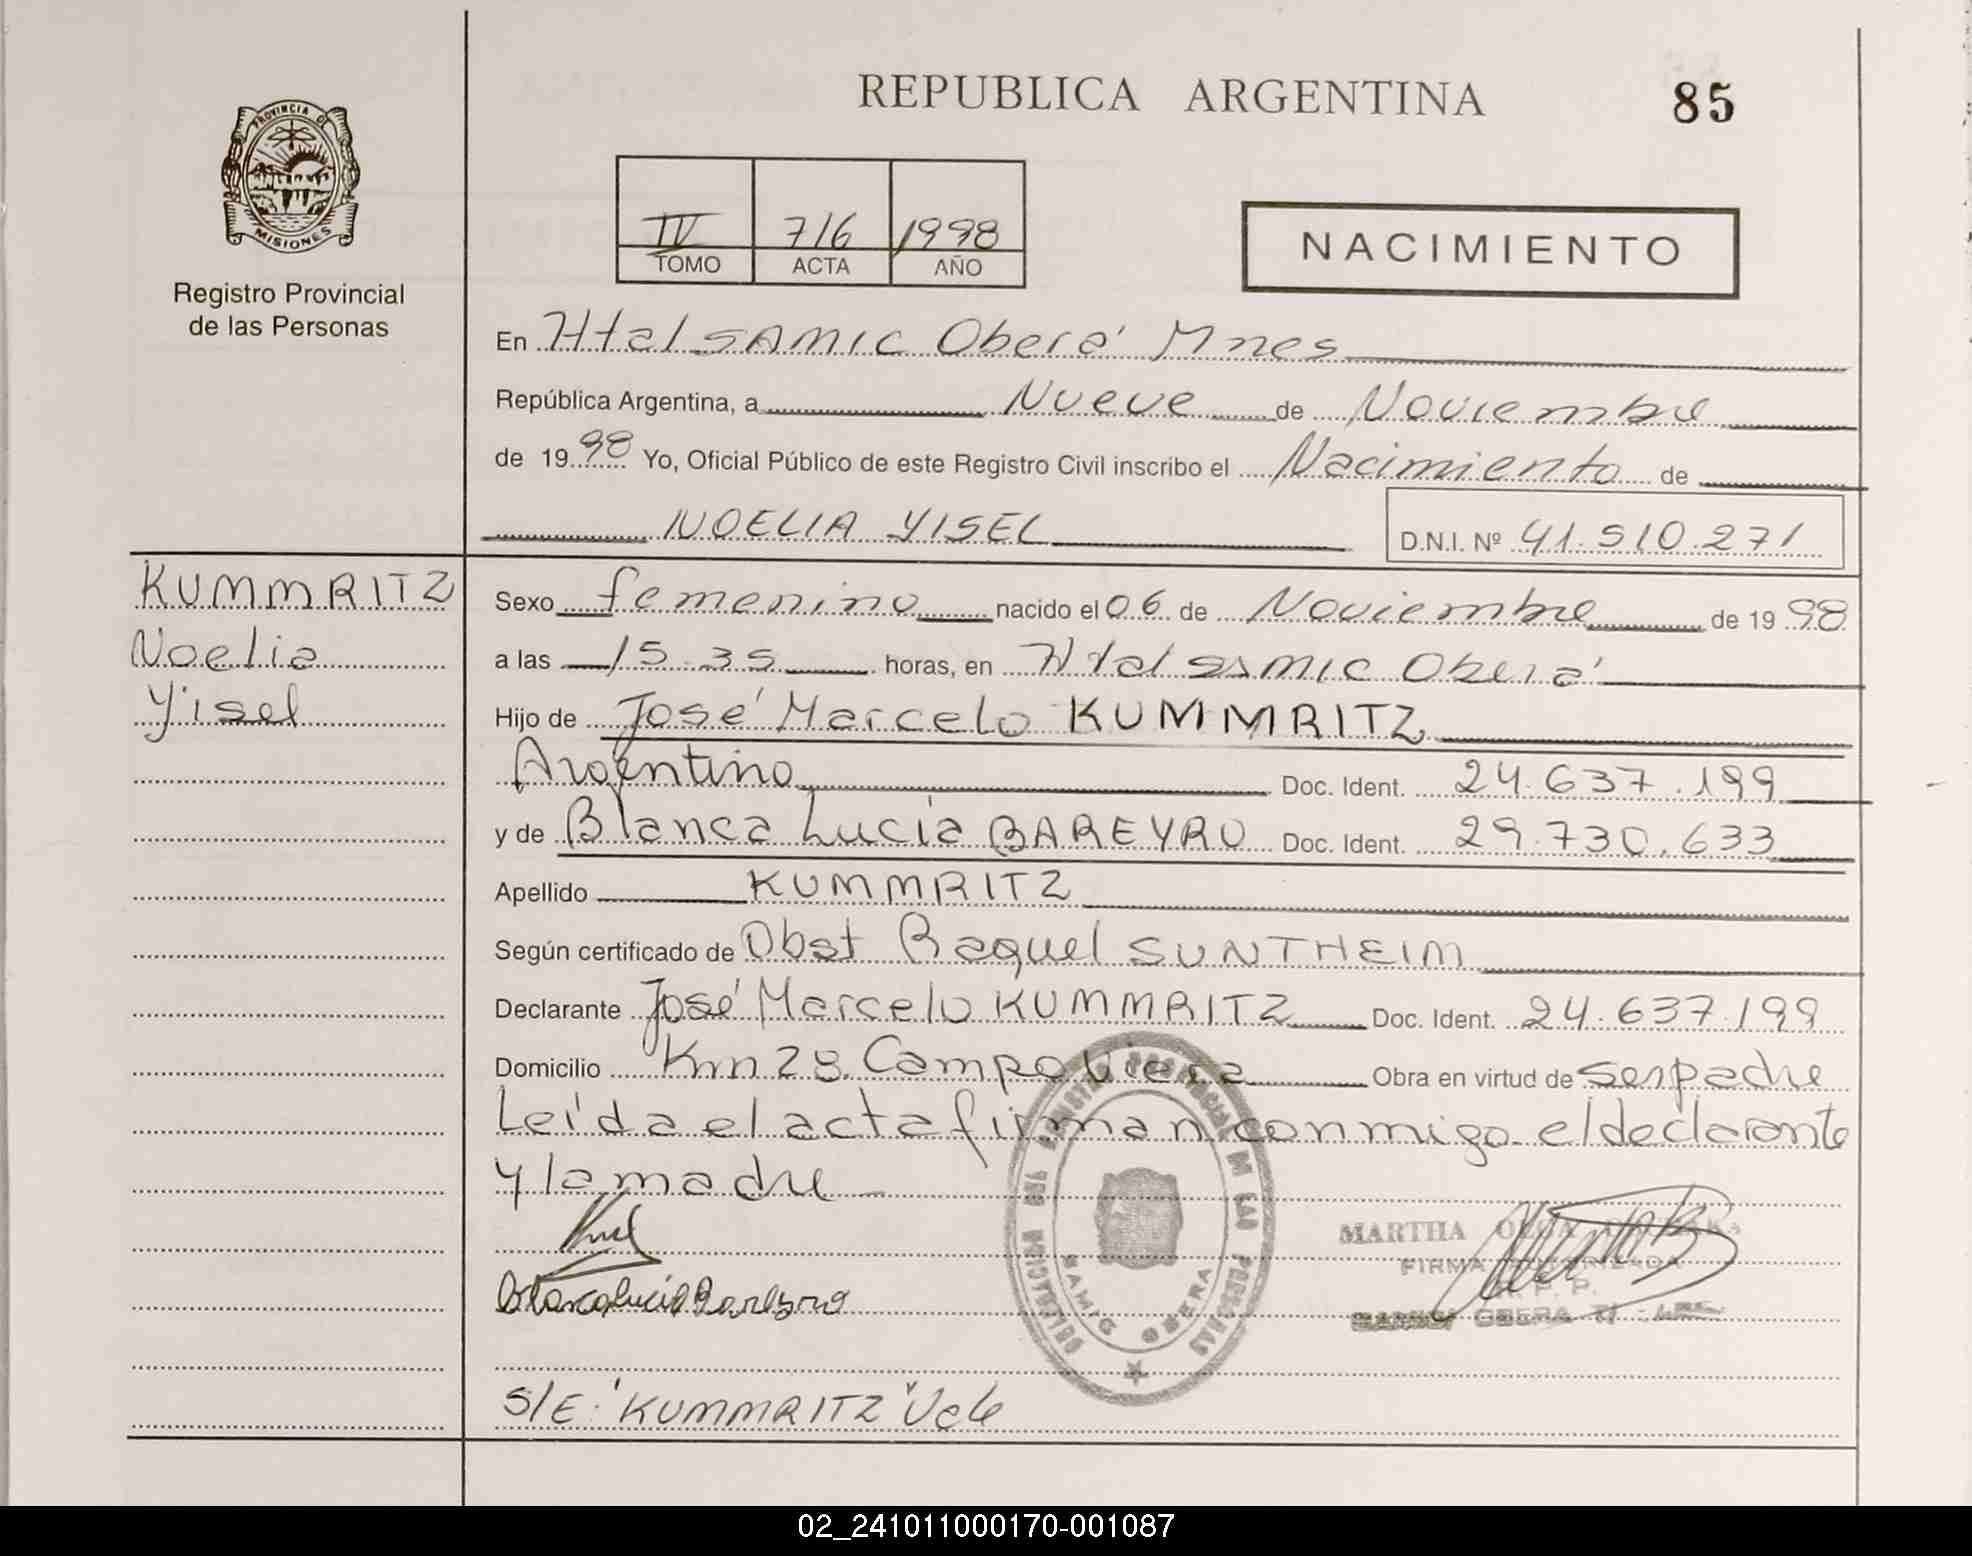 REPUBLICA ARGENTINA
85
PROVINCIA DE
MISIONES
Registro Provincial
de las Personas
IV 716 1998
TOMO ACTA AÑO
NACIMIENTO
En Htal SAMIC Oberá Mnes
República Argentina, a Nueve de Noviembre
de 1998 Yo, Oficial Público de este Registro Civil inscribo el Nacimiento de
NOELIA YISEL D.N.I. Nº 41.510.271
KUMMRITZ
Noelia
Yisel
Sexo femenino nacido el 06 de Noviembre de 1998
a las 15.35 horas, en Htal SAMIC Oberá
Hijo de José Marcelo KUMMRITZ
Argentino Doc. Ident. 24.637.199
y de Blanca Lucía BAREYRO Doc. Ident. 29.730.633
Apellido KUMMRITZ
Según certificado de Obst Raquel SUNTHEIM
Declarante José Marcelo KUMMRITZ Doc. Ident. 24.637.199
Domicilio Km 28 Campo Viera Obra en virtud de ser padre
Leída el acta firman conmigo el declarante
y la madre
Blanca Lucía Bareyro
DELEGACION DEL REGISTRO PROVINCIAL DE LAS PERSONAS
SAMIC OBERA
MARTHA OLGA
FIRMA AUTORIZADA
R. P. P.
OBERA
S/E: "KUMMRITZ" Vale
02_241011000170-001087